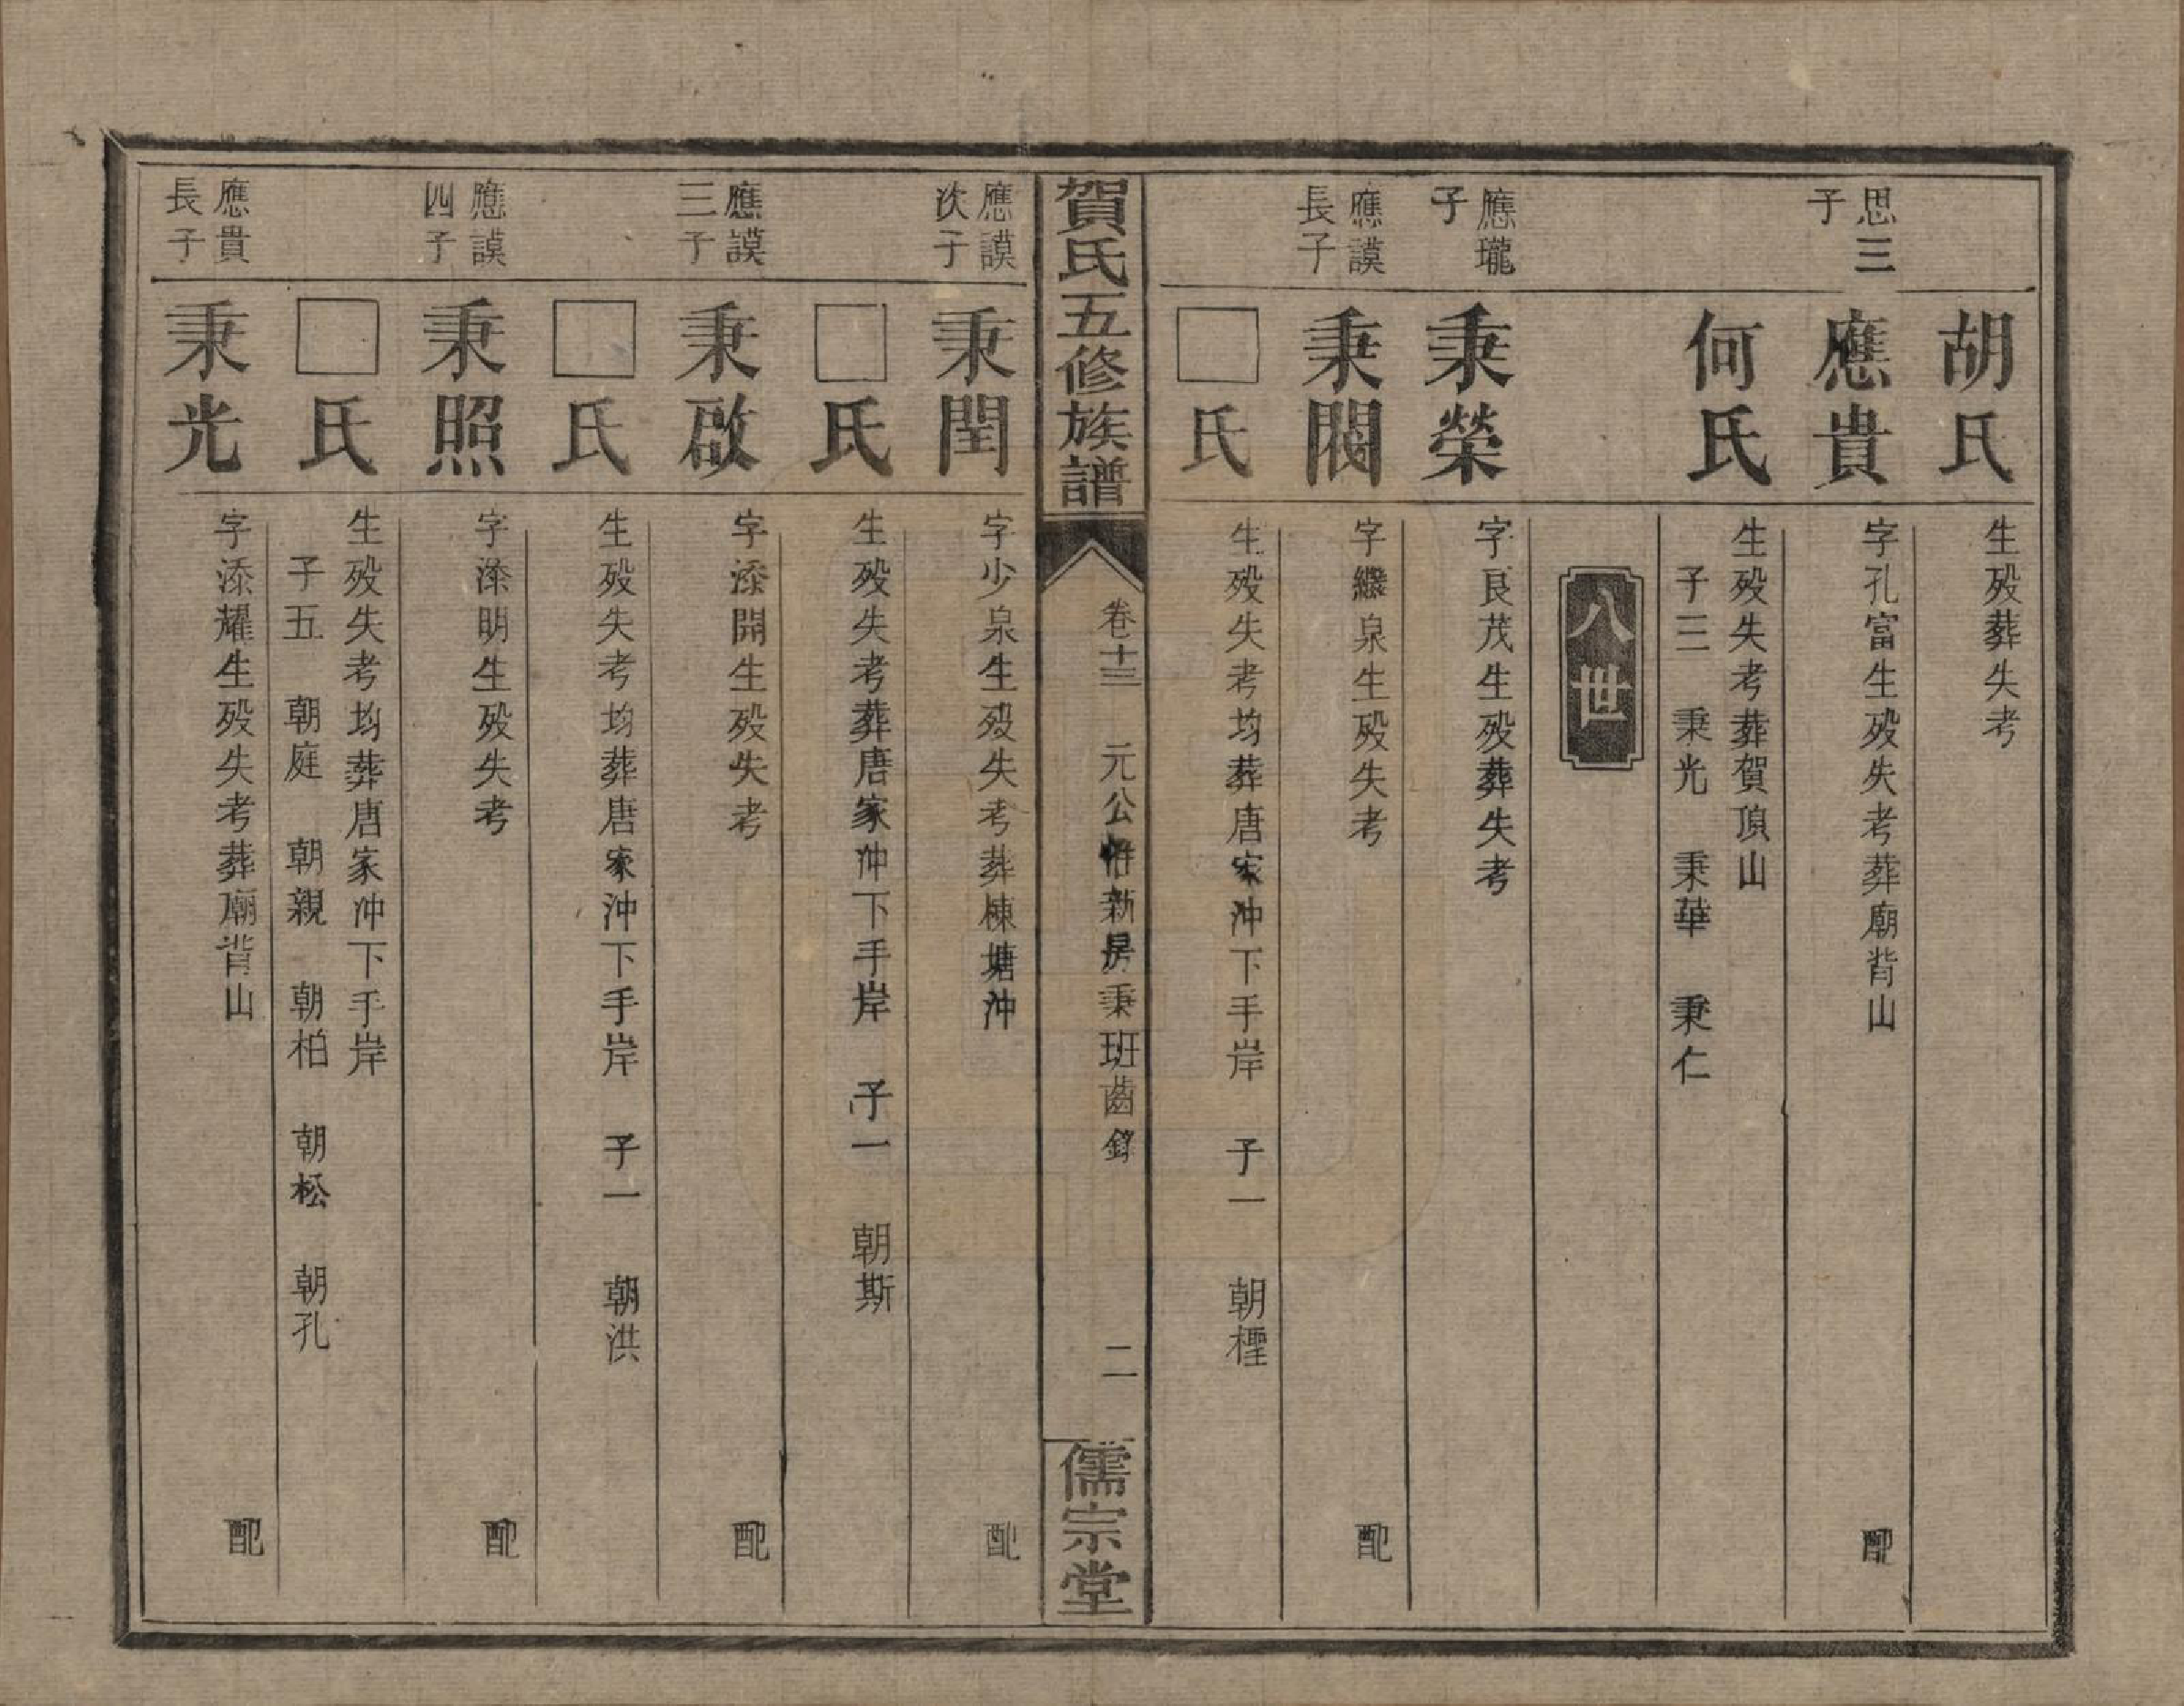 胡氏
生殁葬失考
思三
子
應貴
字孔富生殁失考葬廟背山 配
何氏
生殁失考葬賀頂山
子三 秉光 秉華 秉仁
八世
應瓏
子
秉榮
字良茂生殁葬失考
應謨
長子
秉閣
字繼泉生殁失考 配
□氏
生殁失考均葬唐家沖下手岸 子一 朝檉
賀氏五修族譜
卷十三 元公 新房秉班齒錄 二
儒宗堂
應謨
次子
秉閏
字少泉生殁失考葬棟塘沖 配
□氏
生殁失考葬唐家沖下手岸 子一 朝斯
應謨
三子
秉啟
字添開生殁失考 配
□氏
生殁失考均葬唐家沖下手岸 子一 朝洪
應謨
四子
秉照
字添明生殁失考 配
□氏
生殁失考均葬唐家沖下手岸
子五 朝庭 朝親 朝柏 朝松 朝孔
應貴
長子
秉光
字添耀生殁失考葬廟背山 配